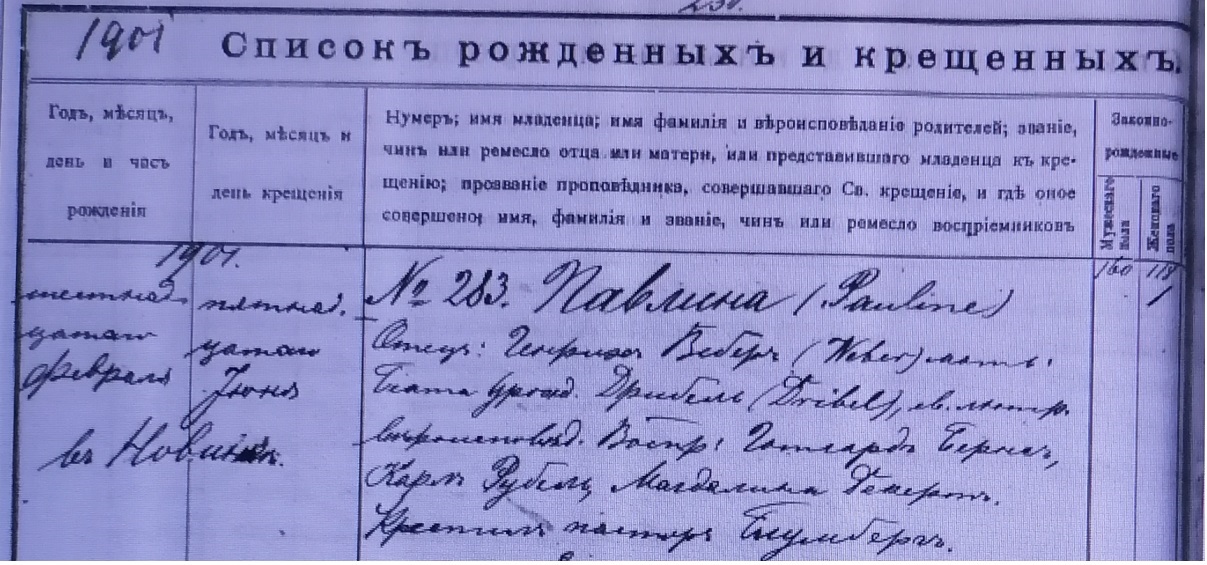 1901 Списокъ рожденныхъ и крещенныхъ.
Годъ, мѣсяцъ,
день и часъ
рожденія
Годъ, мѣсяцъ и
день крещенія
Нумеръ; имя младенца; имя фамилія и вѣроисповѣданіе родителей; званіе,
чинъ или ремесло отца или матери, или представившаго младенца къ кре-
щенію; прозваніе проповѣдника, совершавшаго Св. крещеніе, и гдѣ оное
совершено; имя, фамилія и званіе, чинъ или ремесло воспріемниковъ
Законно-
рожденные
Мужескаго
пола
Женскаго
пола
1901.
шестнад-
цатаго
февраля
въ
пятнад.
цатаго
Іюня
№ 283. Павлина (Pauline)
Отецъ: Генрихъ Веберъ (Weber) мать:
Беата урожд. Дрибель (Dribel), ев. лютер.
вѣроисповѣд. Воспр: Готгардъ
Карлъ Рубель, Магдалина
Крестилъ пасторъ Блумбергъ.
160
118
1